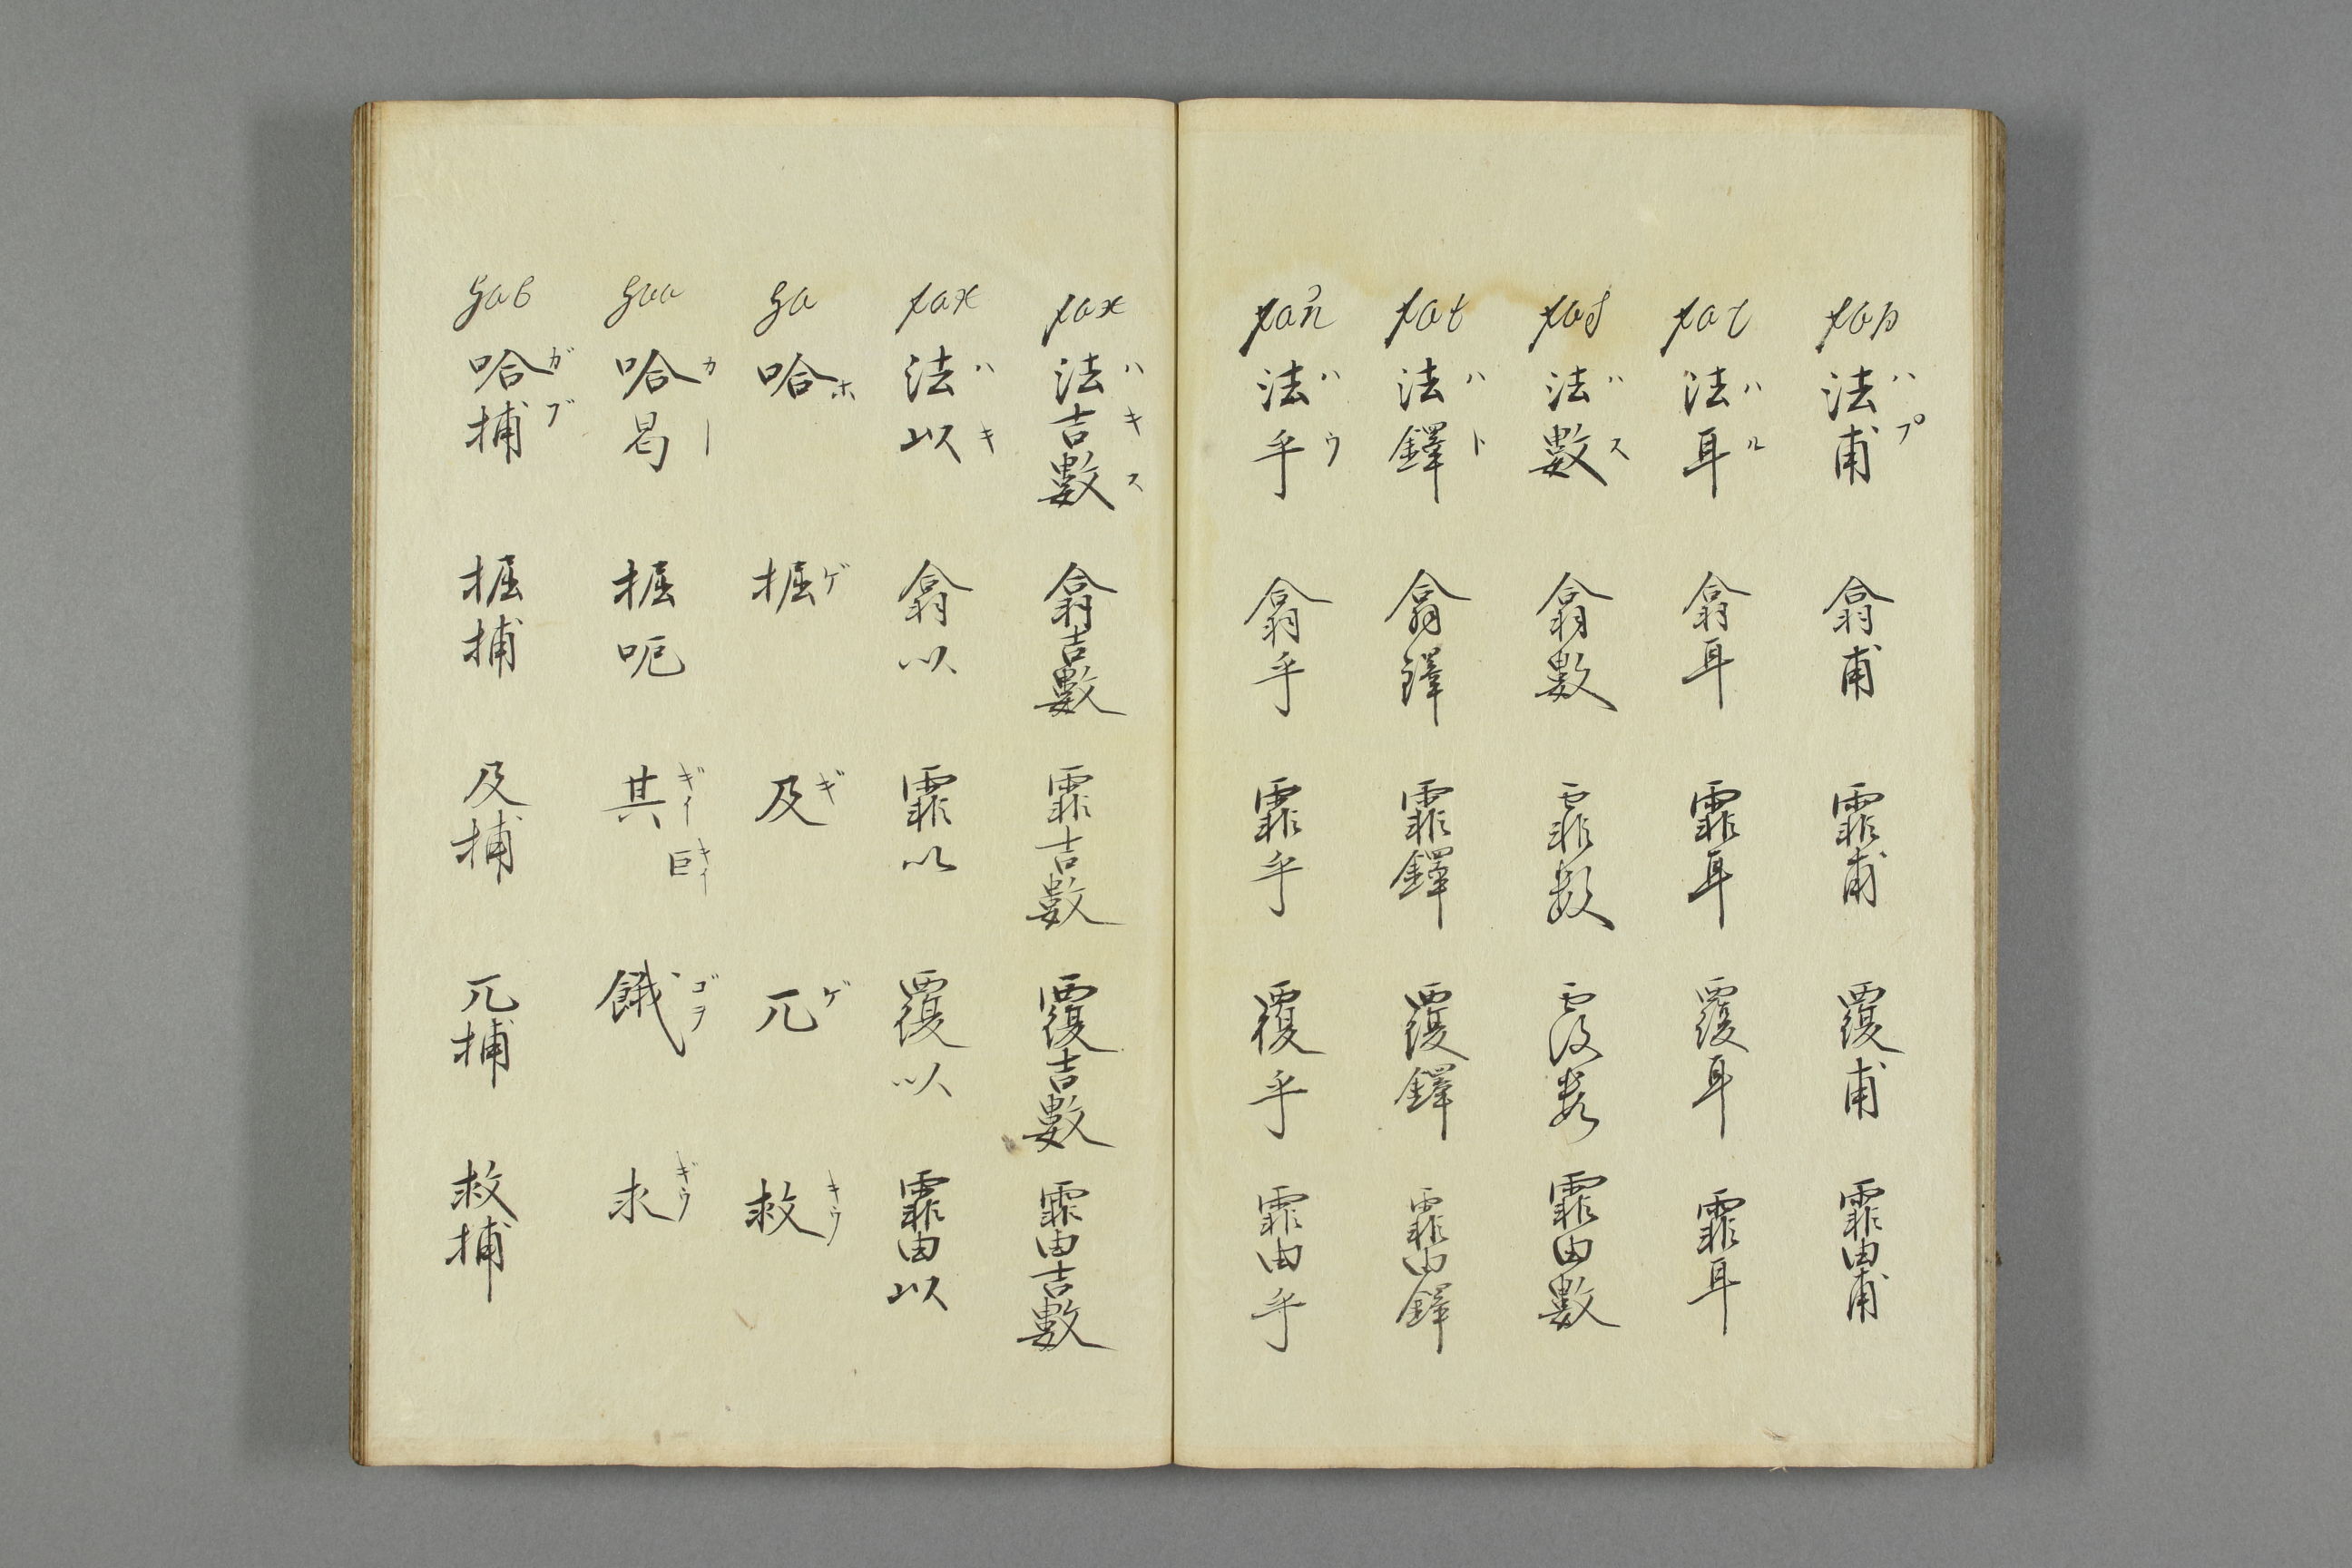 fap 法甫 ハプ 翕甫 霏甫 覆甫 霏由甫
法耳 ハル 翕耳 霏耳 覆耳 霏耳
fas 法數 ハス 翕數 霏数 覆数 霏由數
fat 法鐸 ハト 翕鐸 霏鐸 覆鐸 霏由鐸
法乎 ハウ 翕乎 霏乎 覆乎 霏由乎
fax 法吉數 ハキス 翕吉數 霏吉數 覆吉數 霏由吉數
fax 法以 ハキ 翕以 霏以 覆以 霏由以
ga 哈 掘 ゲ 及 ギ 兀 ゲ 救 キウ
gaa 哈曷 カー 掘呃 其 ギイ 巨 キイ 餓 ゴヲ 求 ギウ
gab 哈捕 ガブ 掘捕 及捕 兀捕 救捕